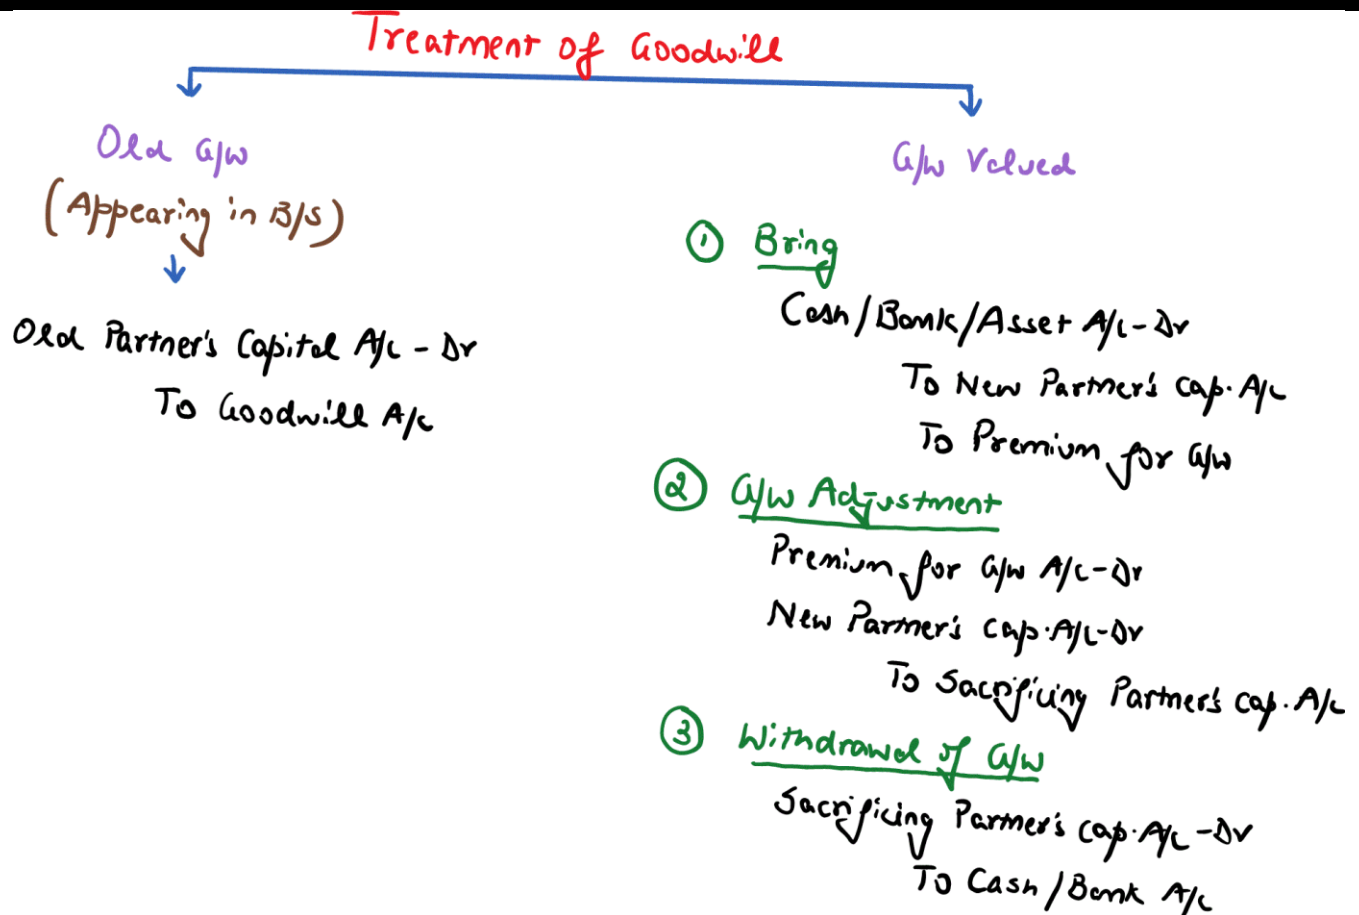 Treatment of Goodwill
Old G/W
(Appearing in B/S)
Old Partner's Capital A/c - Dr
To Goodwill A/c
G/W Valued
① Bring
Cash/Bank/Asset A/c-Dr
To New Partner's Cap. A/c
To Premium for G/w
② G/W Adjustment
Premium for G/w A/c-Dr
New Partner's Cap. A/c-Dr
To Sacrificing Partner's Cap. A/c
③ Withdrawal of G/w
Sacrificing Partner's Cap. A/c -Dr
To Cash/Bank A/c